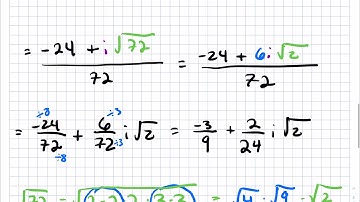 = (-24 + i√72)/72 = (-24 + 6i√2)/72
= -24/72 + 6/72 i√2 = -3/9 + 2/24 i√2
÷8 ÷8 ÷3 ÷3
√72 = √(2·2)·2·(3·3) = √4·√9·√2